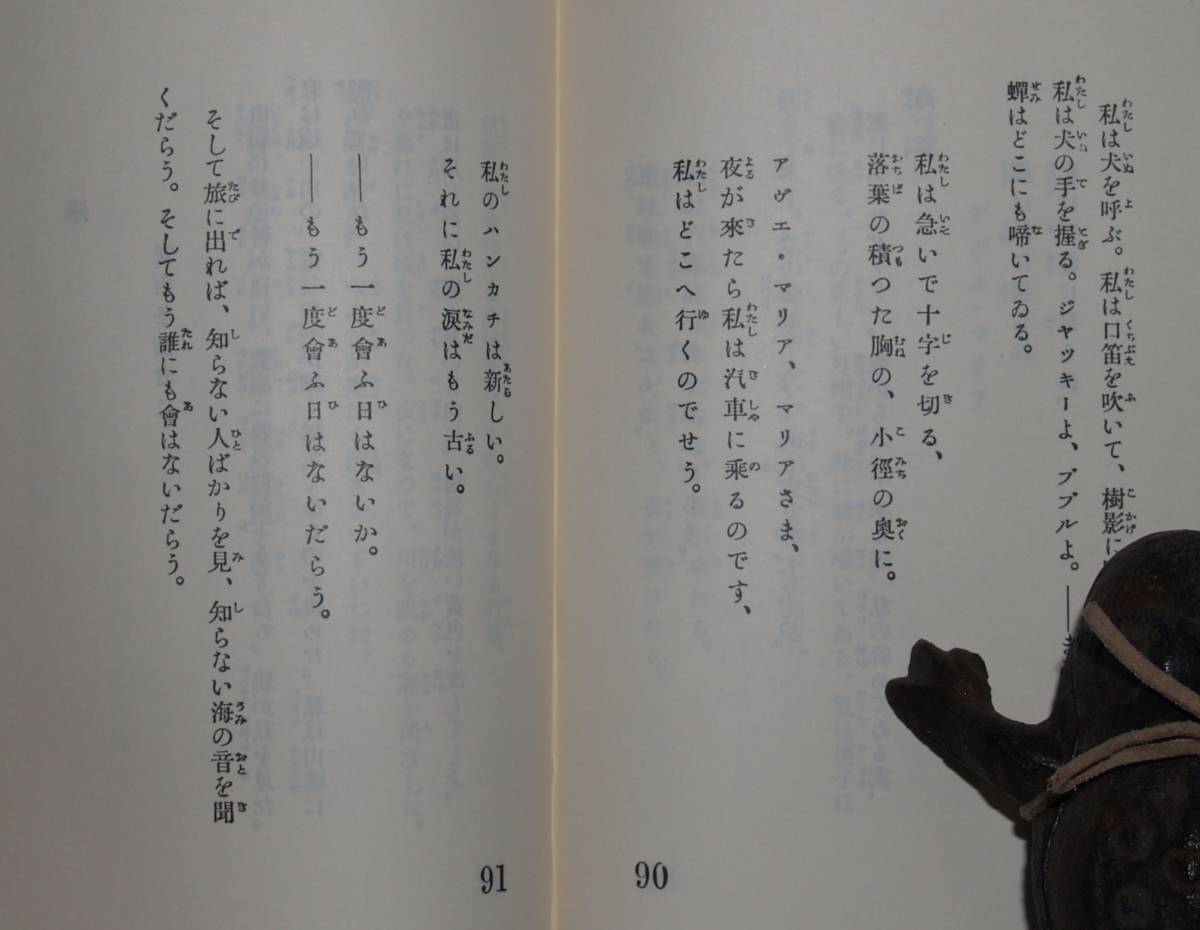 私は犬を呼ぶ。私は口笛を吹いて、樹影に
私は犬の手を握る。ジャッキーよ、ブブルよ。――ま
蟬はどこにも啼いてゐる。
私は急いで十字を切る、
落葉の積つた胸の、小徑の奥に。
アヴエ・マリア、マリアさま、
夜が來たら私は汽車に乘るのです、
私はどこへ行くのでせう。
90
私のハンカチは新しい。
それに私の涙はもう古い。
――もう一度會ふ日はないか。
――もう一度會ふ日はないだらう。
そして旅に出れば、知らない人ばかりを見、知らない海の音を聞
くだらう。そしてもう誰にも會はないだらう。
91